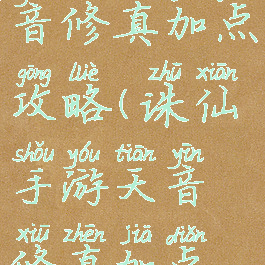 音修真加点
gōng lüè zhū xiān
攻略(诛仙
shǒu yóu tiān yīn
手游天音
xiū zhēn jiā diǎn
修真加点